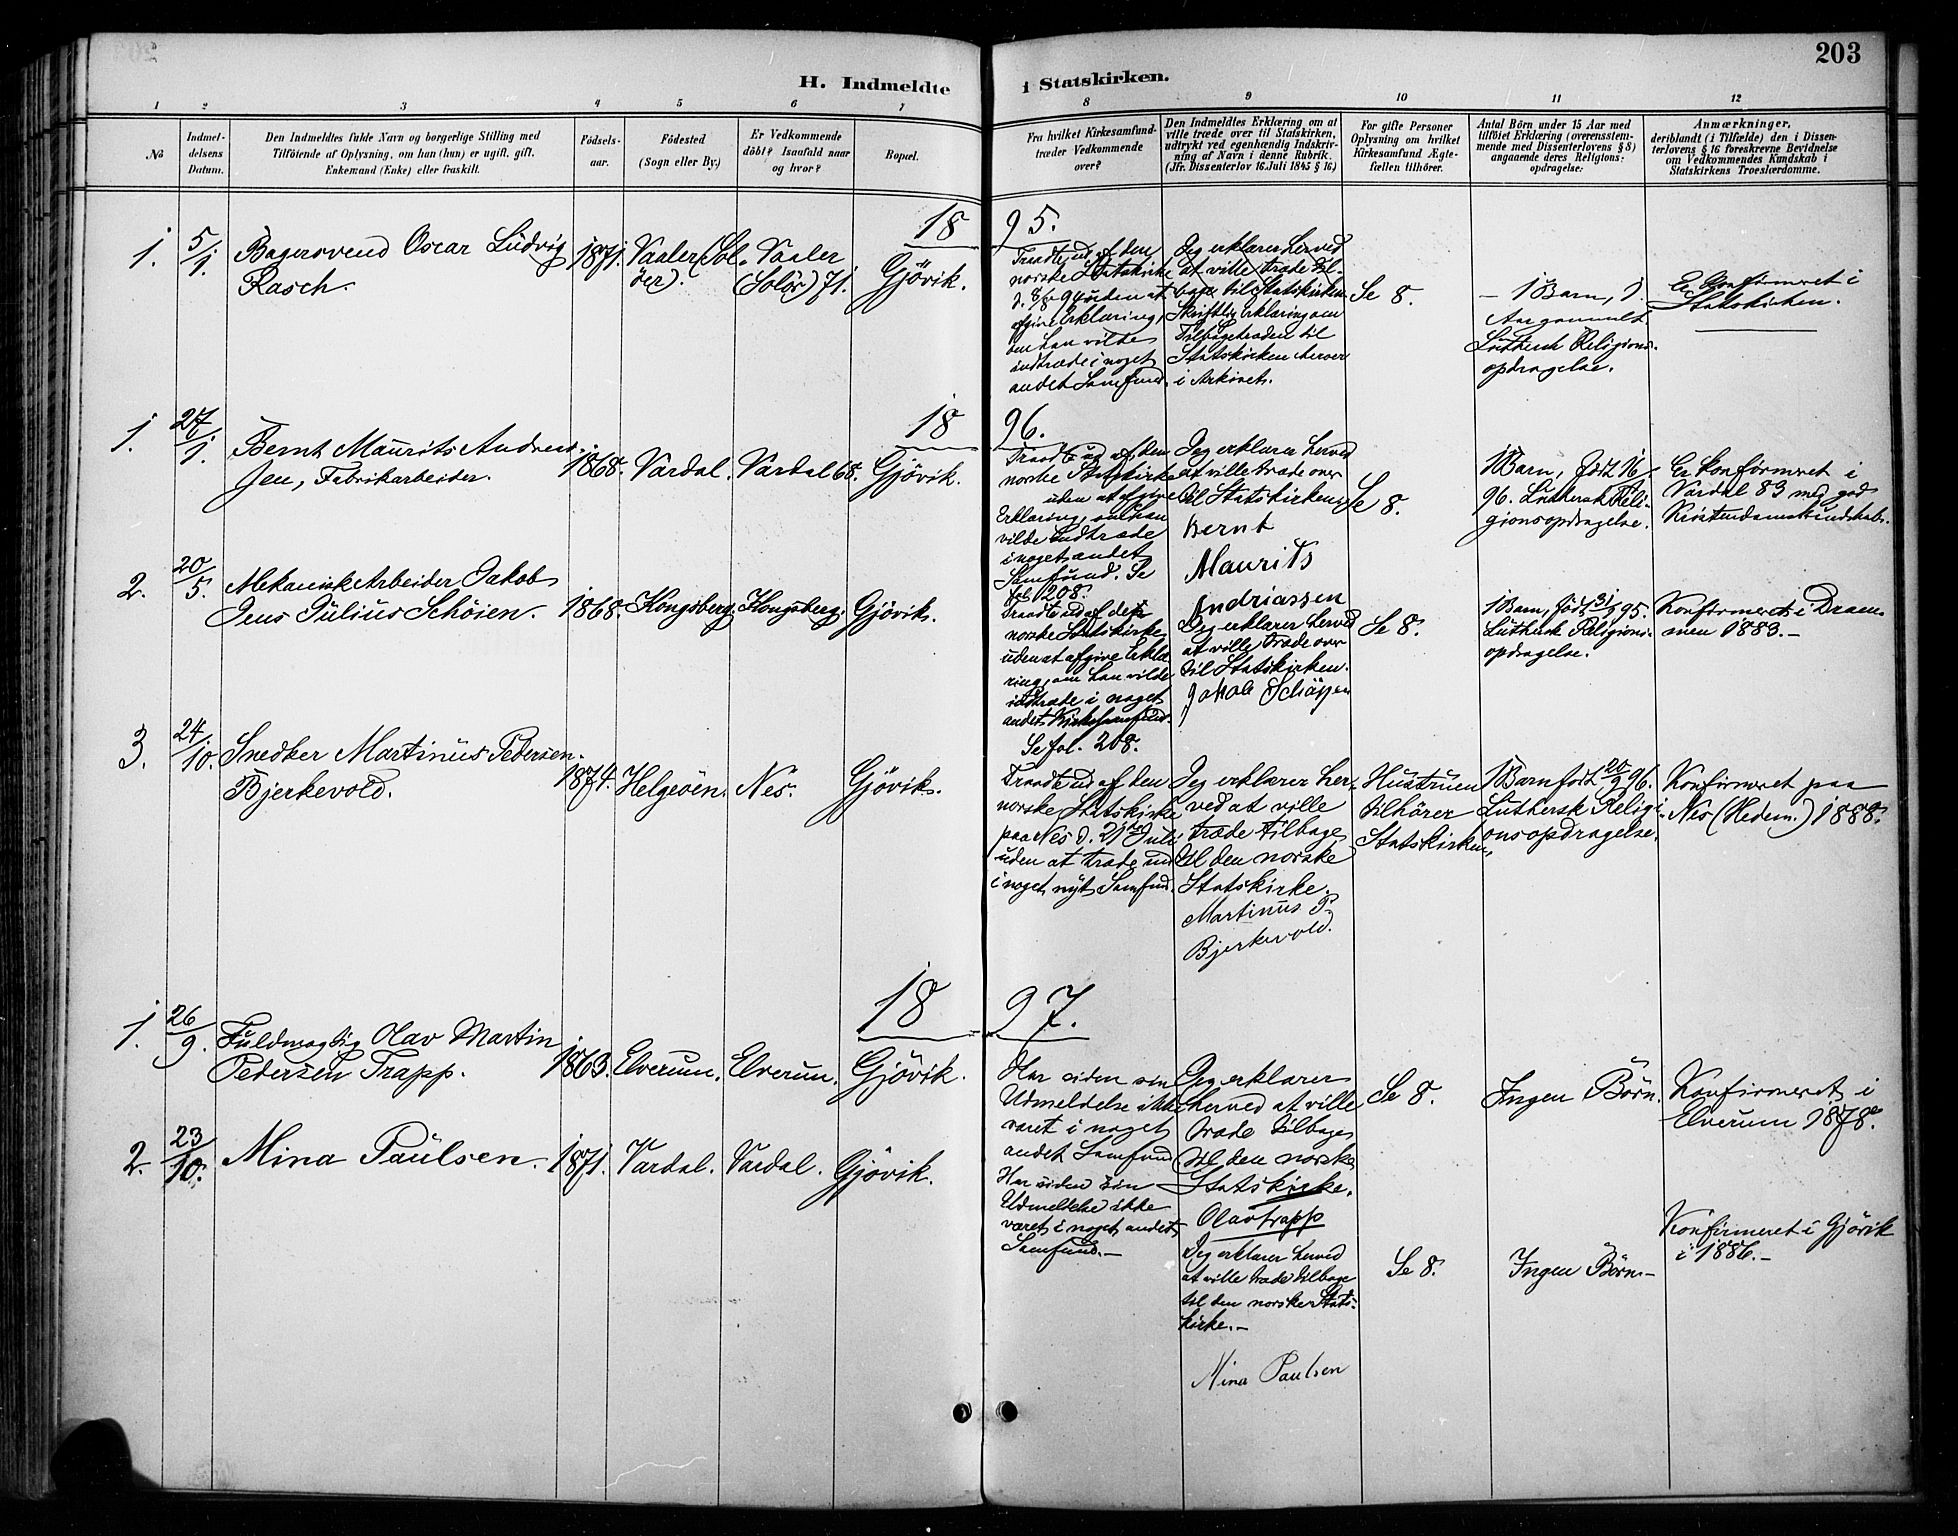 203
H. Indmeldte
i Statskirken.
1 2 3 4 5 6 7
8 9 10 11 12
No
Indmel-
delsens
Datum.
Den Indmeldtes fulde Navn og borgerlige Stilling med
Tilföiende af Oplysning, om han (hun) er ugift, gift,
Enkemand (Enke) eller fraskilt.
Födsels-
aar.
Födested
(Sogn eller By.)
Er Vedkommende
döbt? Isaafald naar
og hvor?
Bopæl.
Fra hvilket Kirkesamfund-
træder Vedkommende
over?
Den Indmeldtes Erklæring om at
ville træde over til Statskirken,
udtrykt ved egenhændig Indskriv-
ning af Navn i denne Rubrik.
(Jfr. Dissenterlov 16. Juli 1845 § 16)
For gifte Personer
Oplysning om hvilket
Kirkesamfund Ægte-
fællen tilhörer.
Antal Börn under 15 Aar med
tilföiet Erklæring (overensstem-
mende med Dissenterlovens § 8)
angaaende deres Religions-
opdragelse.
Anmærkninger,
deriblandt (i Tilfælde) den i Dissen-
terlovens § 16 foreskrevne Bevidnelse
om Vedkommendes Kundskab i
Statskirkens Troeslærdomme.
1895.
1. 5/1. Bagersvend Oscar Ludvig
Rasch.
1871. Vaaler (Sol-
öer).
Vaaler
(Solör) 71.
Gjövik.
Traadte ud af den
norske Statskirke
94 uden at
afgive Erklæring,
om han vilde
indtræde i noget
andet Samfund.
Jeg erklærer herved
at ville træde til-
bage til Statskirken
Skriftlig Erklæring om
Tilbagetræden til
Statskirken herover
i Arkivet.
Se 8.
- 1 Barn, 1.
Aar gammelt.
Luthersk Religions-
opdragelse.
Er Konfirmeret i
Statskirken.
1896.
1. 27/1. Bernt Maurits Andreas-
sen, Fabrikarbeider.
1868. Vardal. Vardal 68. Gjövik.
Traadte ud af den
norske Statskirke
uden at afgive
Erklæring, om han
vilde indtræde
i noget andet
Samfund. Se
fol. 208.
Jeg erklærer herved
at ville træde over
til Statskirken
Bernt
Maurits
Andriassen
Se 8.
1 Barn, født
96. Luthersk Reli-
gionsopdragelse.
Er konfirmeret i
Vardal 83 med god
Kristendomskundskab.
2. 20/5. Mekanisk Arbeider Jakob
Jens Julius Schöien.
1868. Kongsberg. Kongsberg. Gjövik.
Traadte ud af den
norske Statskirke
uden at afgive Erklæ-
ring, om han vilde
indtræde i noget
andet Kirkesamfund.
Se fol. 208.
Jeg erklærer herved
at ville træde over
til Statskirken.
Jakob Schöyen
Se 8.
1 Barn, födt 95.
Luthersk Religions-
opdragelse.
Konfirmeret i Dram-
men 1883.-
3. 24/10. Snedker Martinus Pedersen
Bjerkevold.
1874. Helgeöen. Nes. Gjövik.
Traadte ud af den
norske Statskirke
paa Nes d. Juli
uden at træde ind
i noget nyt Samfund.
Jeg erklærer her-
ved at ville
træde tilbage
til den norske
Statskirke.
Martinus P.
Bjerkevold.
Hustruen
tilhörer
Statskirken.
1 Barn födt 20/9 96.
Luthersk Religi-
onsopdragelse.
Konfirmeret paa
Nes (Hedem.) 1888.
1897.
1. 26/9. Fuldmægtig Olav Martin
Pedersen Trapp.
1863. Elverum. Elverum. Gjövik.
Har siden sin
Udmeldelse ikke
været i noget
andet Samfund
Jeg erklærer
herved at ville
træde tilbage
til den norske
Statskirke.
Olav Trapp
Se 8.
Ingen Börn.
Konfirmeret i
Elverum 1878.
2. 23/10. Mina Paulsen.
1871. Vardal. Vardal. Gjövik.
Har siden sin
Udmeldelse ikke
været i noget andet
Samfund.-
Jeg erklærer herved
at ville træde tilbage
til den norske Stats-
kirke.-
Mina Paulsen
Se 8.
Ingen Börn-
Konfirmeret i Gjövik
i 1886.-